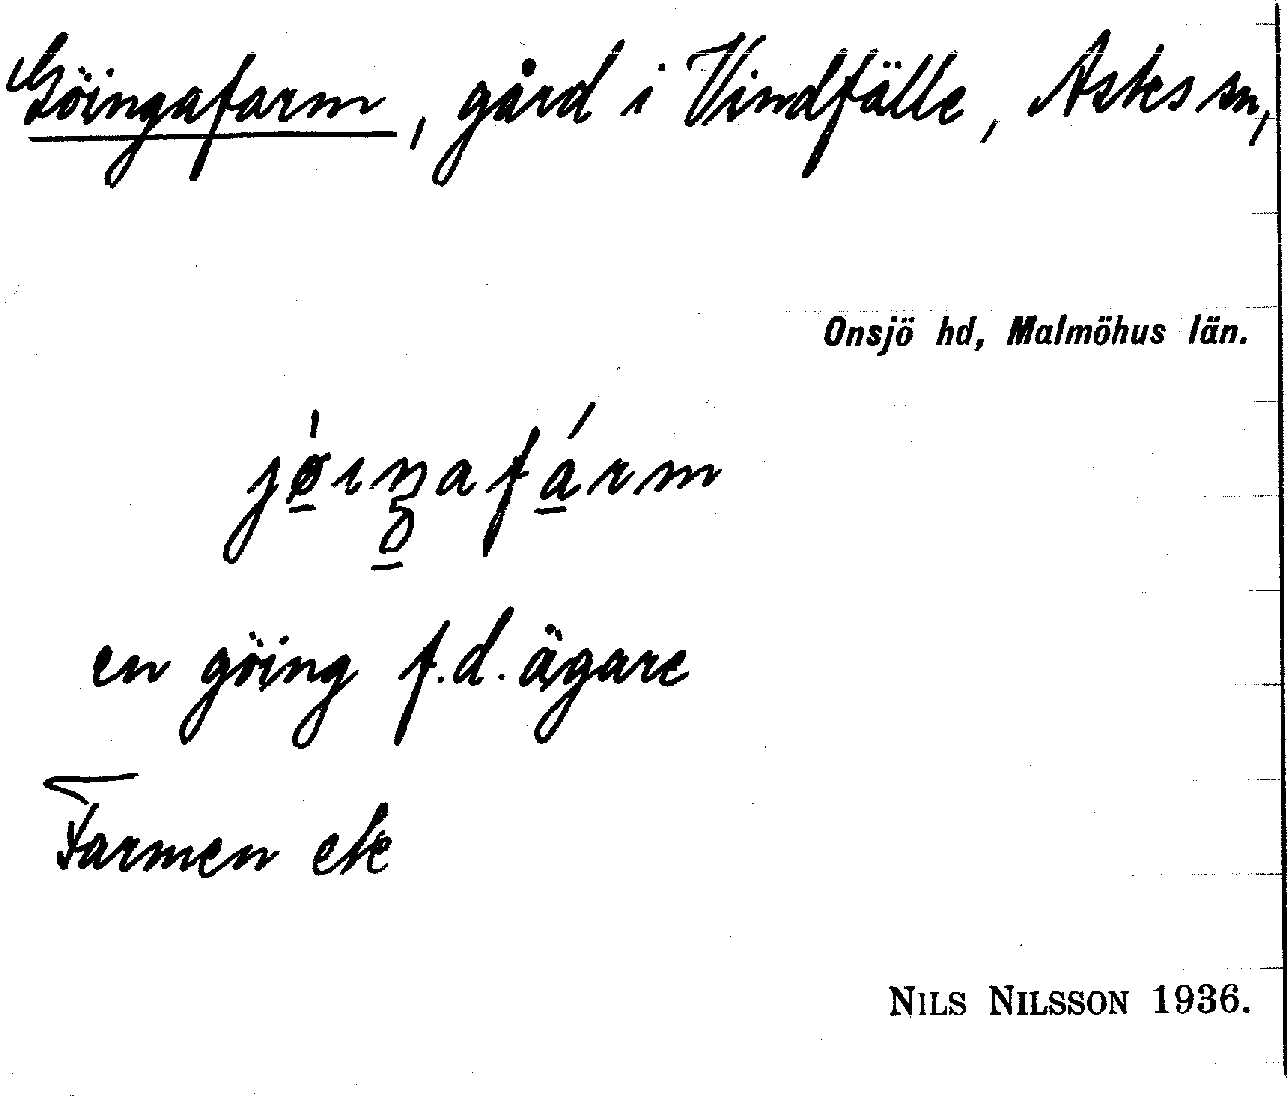 Göingafarm, gård i Vindfälle, Asks sn,
Onsjö hd, Malmöhus län.
jǿ̱ıŋ̱afá̱rm
en göing f.d. ägare
Farmen ek
NILS NILSSON 1936.